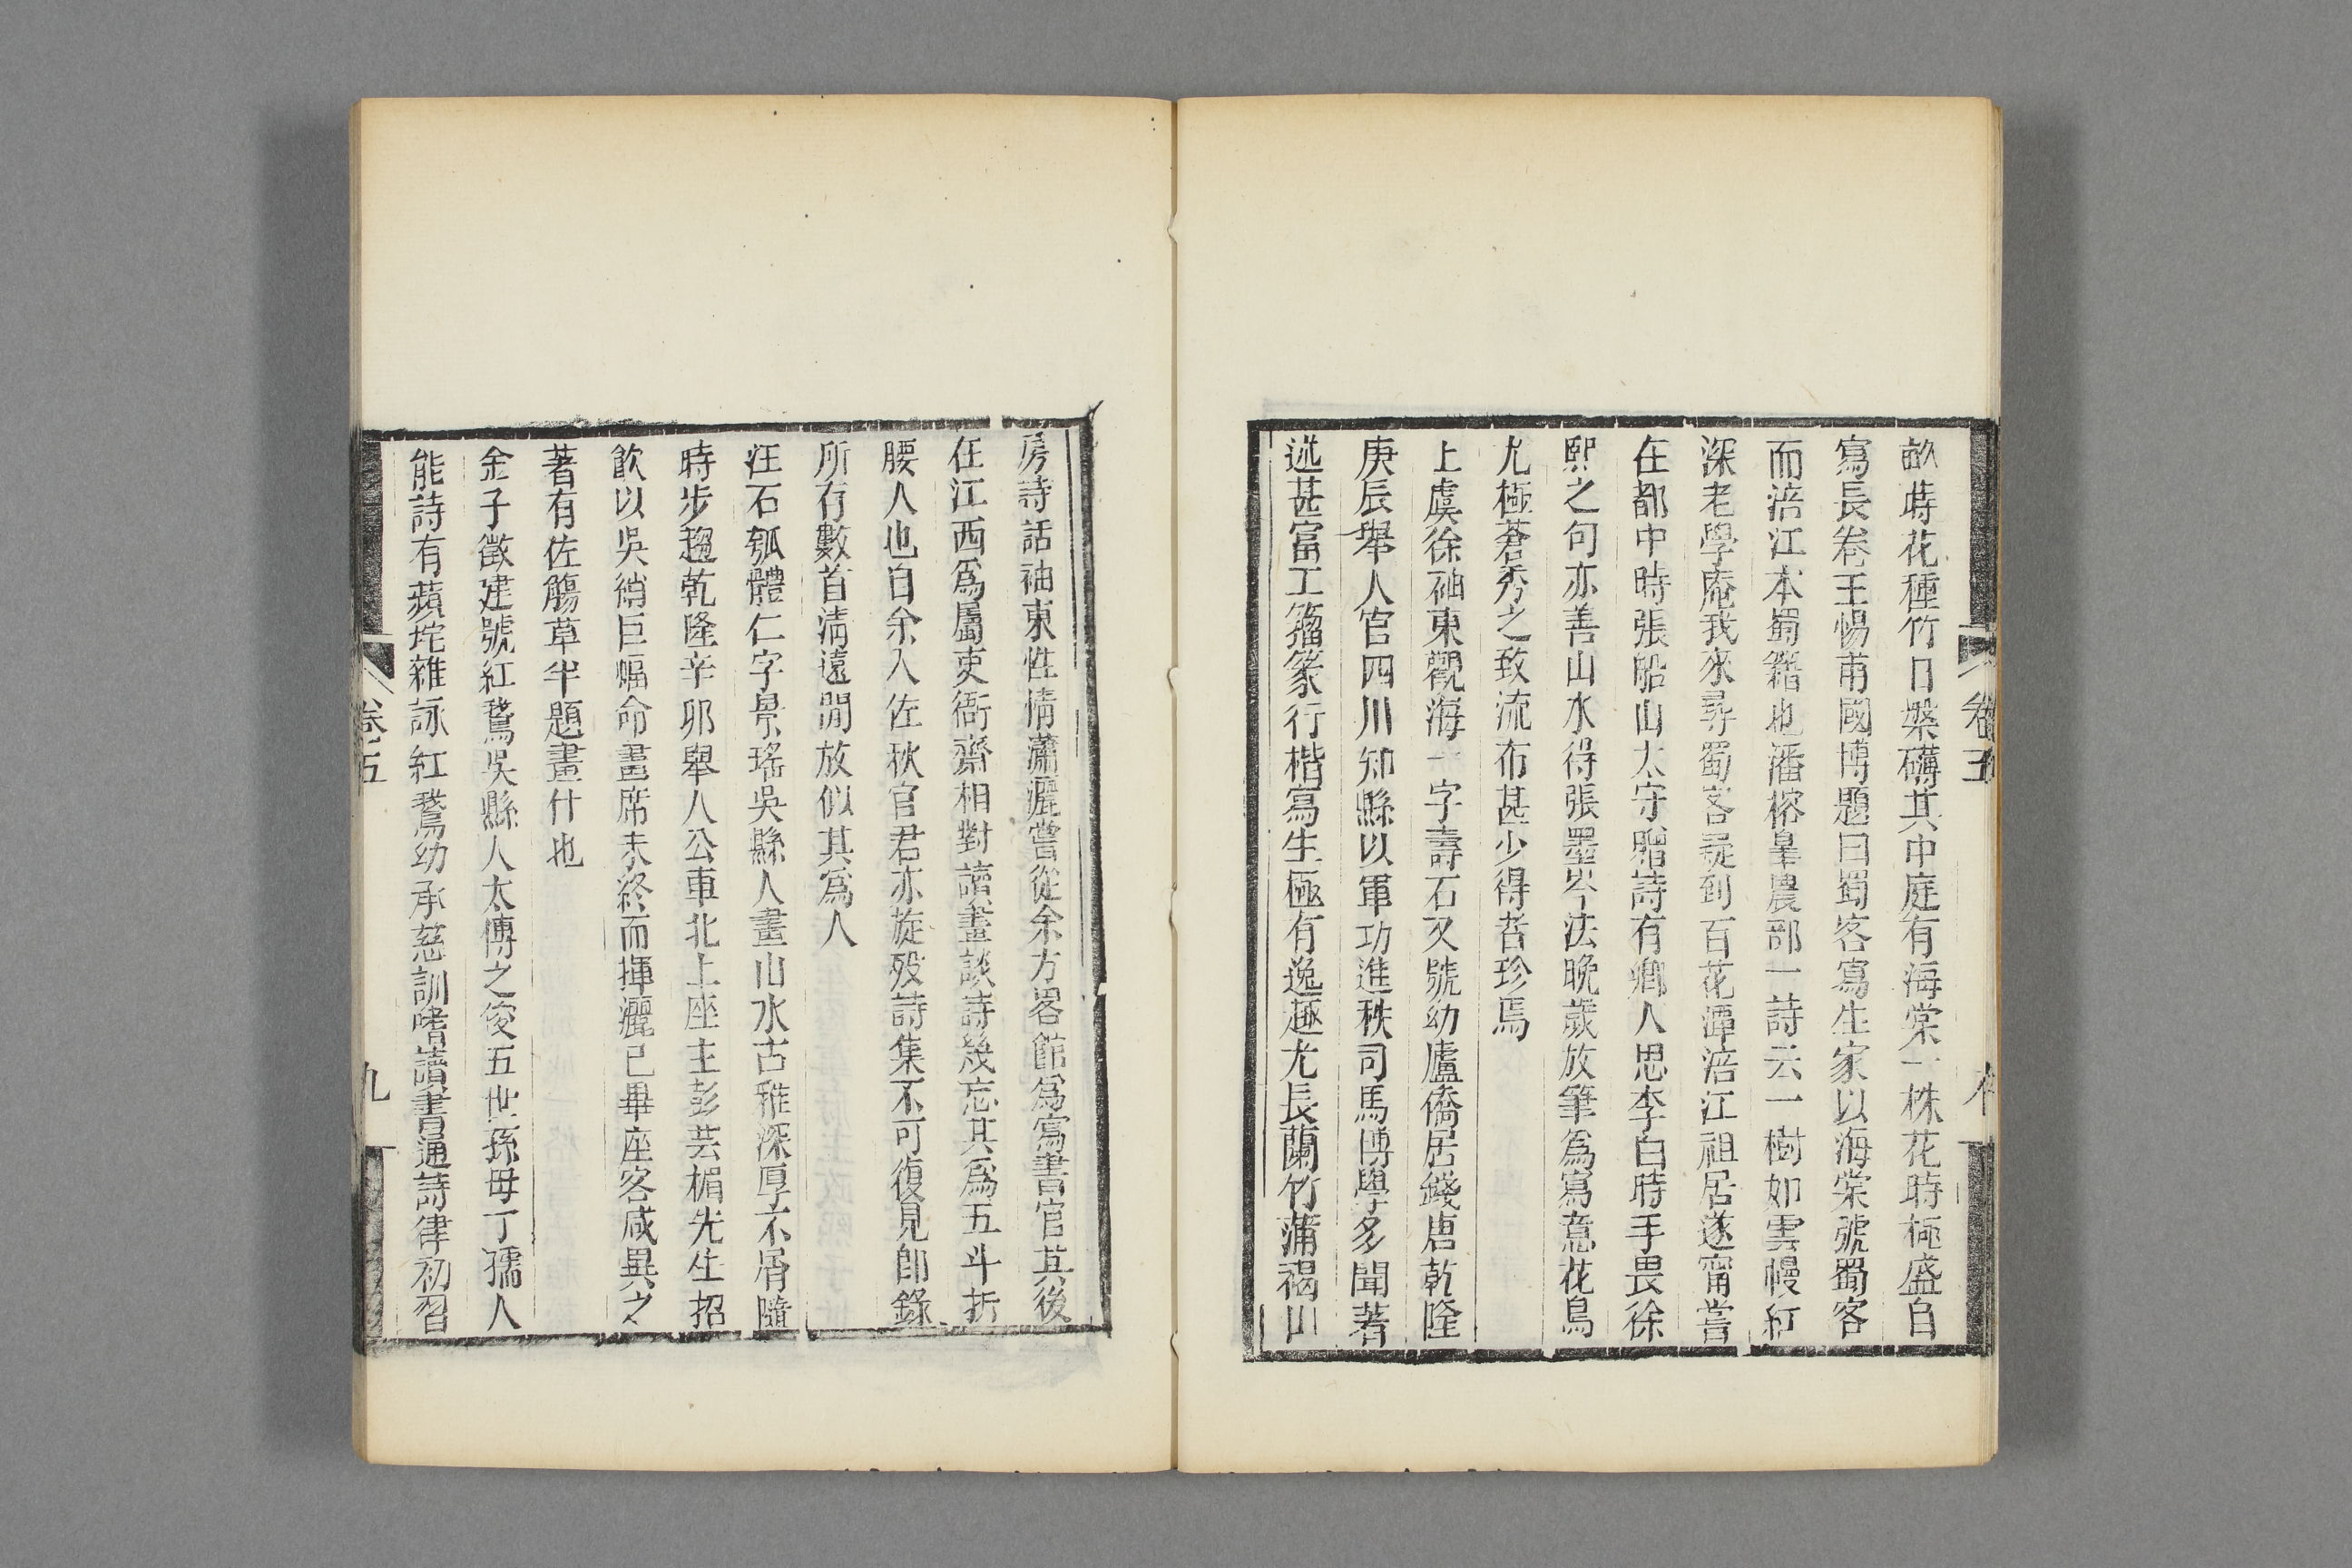 畝蒔花種竹日槃礴其中庭有海棠一株花時極盛自
寫長卷王惕甫國博題曰蜀客寫生家以海棠號蜀客
而涪江本蜀籍也潘榕臯農部一詩云一樹如雲幔紅
深老學庵我來尋蜀客疑到百花潭涪江祖居遂甯嘗
在都中時張船山太守贈詩有鄉人思李白時手畏徐
熙之句亦善山水得張墨岑法晚歲放筆爲寫意花鳥
尤極蒼秀之致流布甚少得者珍焉
上虞徐袖東觀海一字壽石又號幼廬僑居錢唐乾隆
庚辰舉人官四川知縣以軍功進秩司馬博學多聞著
述甚富工籀篆行楷寫生極有逸趣尤長蘭竹蒲褐山
卷五
房詩話袖東性情瀟灑嘗從余方畧館爲寫書官其後
在江西爲屬吏衙齋相對讀畫談詩幾忘其爲五斗折
腰人也自余入佐秋官君亦旋殁詩集不可復見卽錄
所存數首淸遠閒放似其爲人
汪石瓠體仁字景瑤吳縣人畫山水古雅深厚不屑隨
時步趨乾隆辛卯舉人公車北上座主彭芸楣先生招
飮以吳綃巨幅命畫席未終而揮灑已畢座客咸異之
著有佐觴草半題畫什也
金子徵建號紅鵞吳縣人太傅之俊五世孫母丁孺人
能詩有蘋垞雜詠紅鵞幼承慈訓嗜讀書通詩律初習
卷五
九